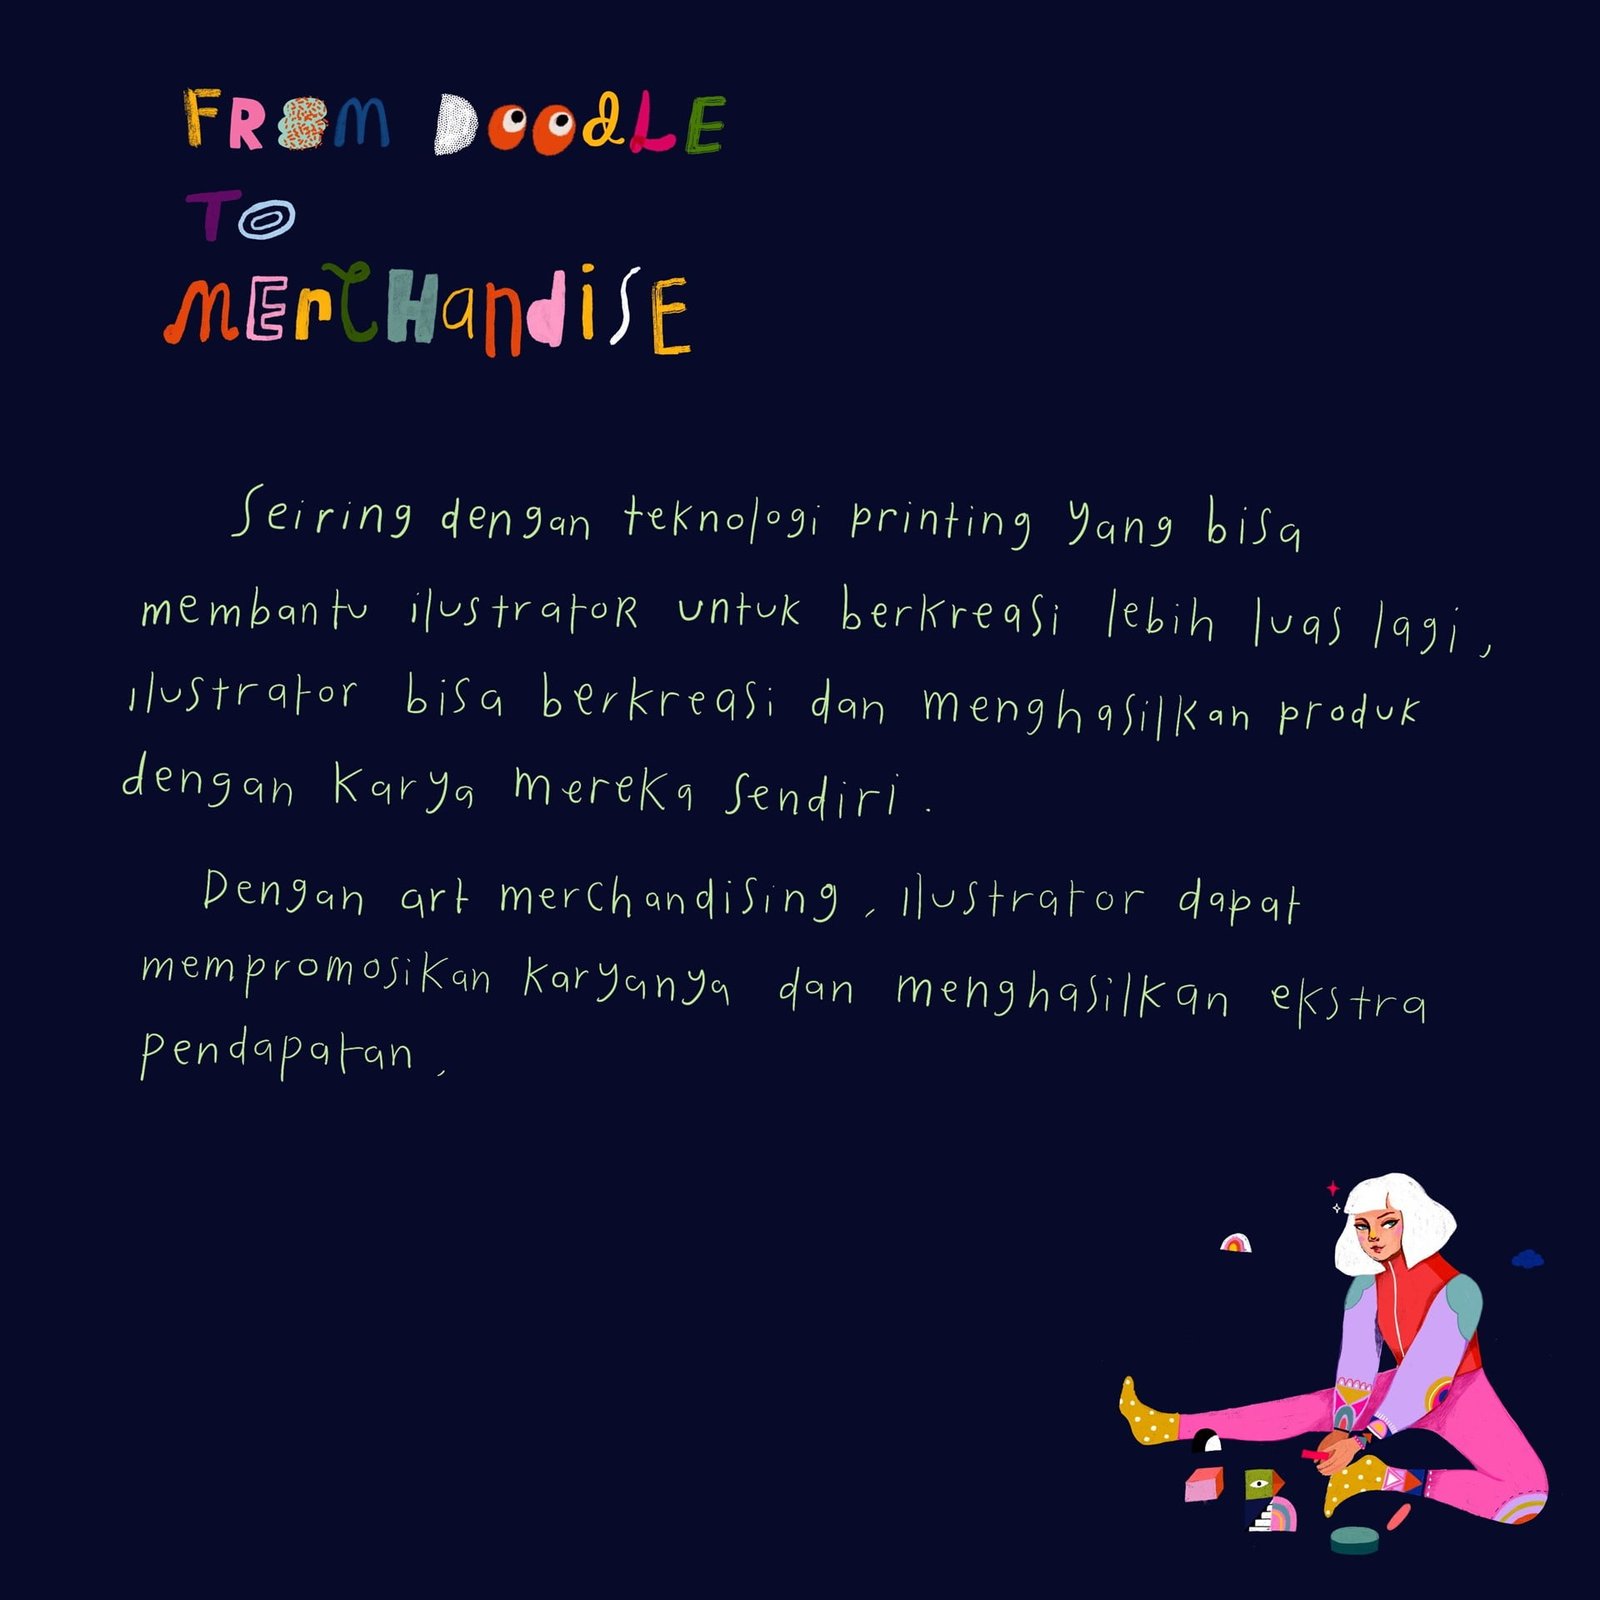 FROM DOODLE
TO
MERCHANDISE
Seiring dengan teknologi printing yang bisa
membantu ilustrator untuk berkreasi lebih luas lagi,
ilustrator bisa berkreasi dan menghasilkan produk
dengan karya mereka sendiri.
Dengan art merchandising, ilustrator dapat
mempromosikan karyanya dan menghasilkan ekstra
pendapatan.